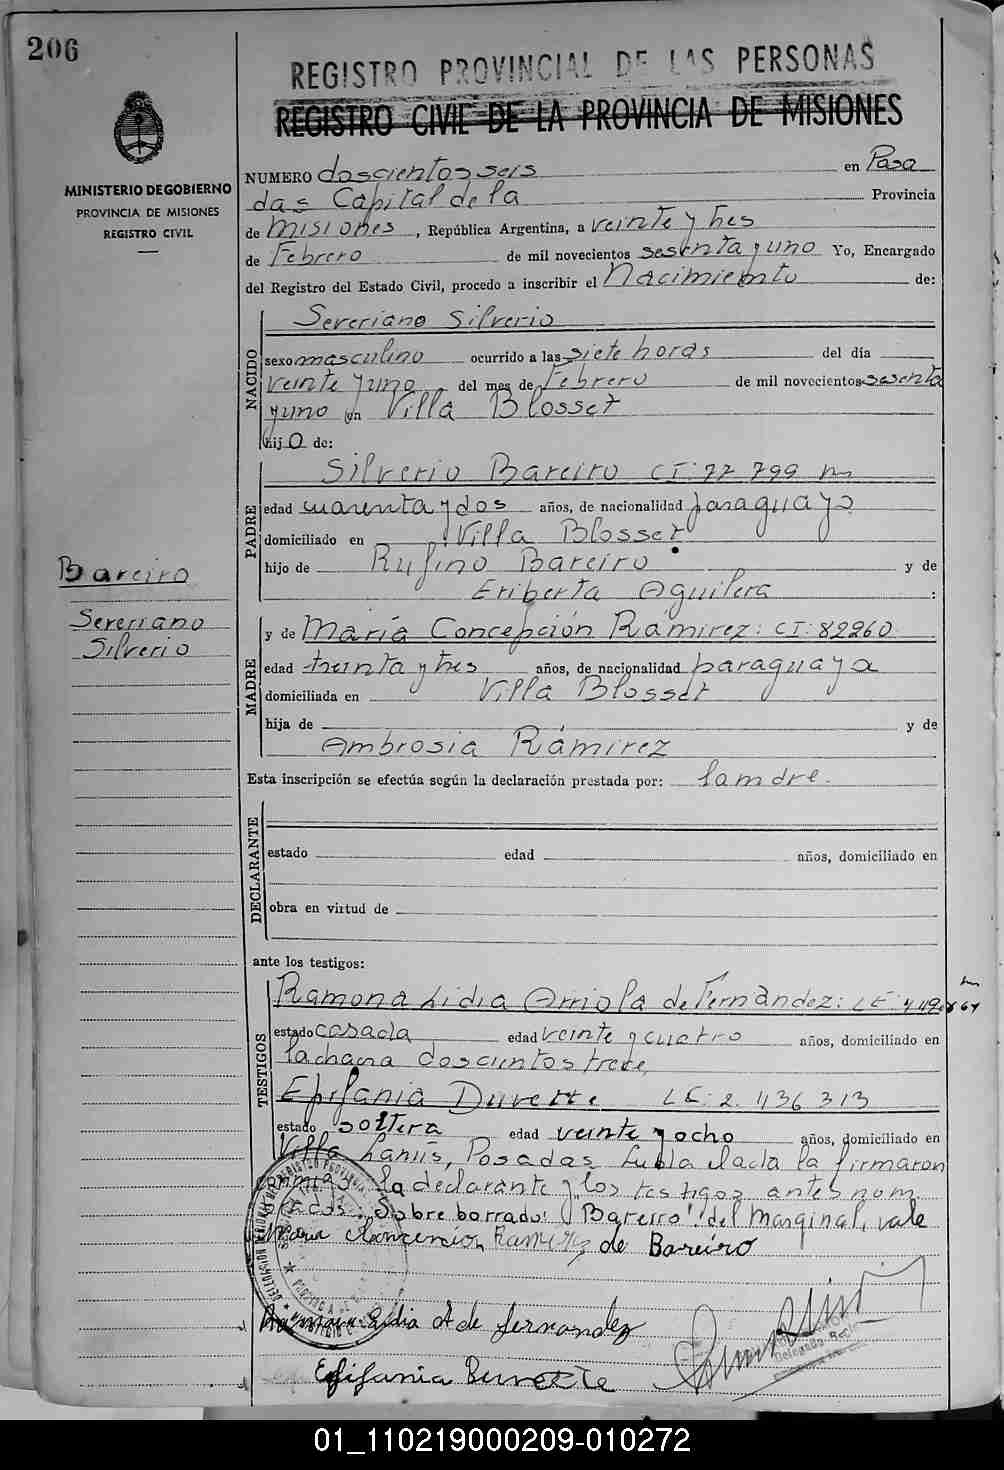 206
REGISTRO PROVINCIAL DE LAS PERSONAS
REGISTRO CIVIL DE LA PROVINCIA DE MISIONES
MINISTERIO DE GOBIERNO
PROVINCIA DE MISIONES
REGISTRO CIVIL
NUMERO doscientos seis en Posa
das Capital de la Provincia
de Misiones, República Argentina, a veinte y tres
de Febrero de mil novecientos sesenta y uno Yo, Encargado
del Registro del Estado Civil, procedo a inscribir el Nacimiento de:
NACIDO
Severiano Silverio
sexo masculino ocurrido a las siete horas del día
veinte y uno del mes de Febrero de mil novecientos sesenta
y uno en Villa Blosset
hijo de:
PADRE
Silverio Bareiro CI: 77 799 m
edad cuarenta y dos años, de nacionalidad paraguaya
domiciliado en Villa Blosset
hijo de Rufino Bareiro y de
Eriberta Aguilera
Bareiro
Severiano
Silverio
MADRE
y de María Concepción Ramirez: CI: 82260
edad treinta y tres años, de nacionalidad paraguaya
domiciliada en Villa Blosset
hija de y de
Ambrosia Rámirez
Esta inscripción se efectúa según la declaración prestada por: la mdre.
DECLARANTE
estado edad años, domiciliado en
obra en virtud de
ante los testigos:
TESTIGOS
Ramona Lidia Arriola de Fernàndez: LE:
estado casada edad veinte y cuatro años, domiciliado en
la chacra doscientos trece,
Epifania Duvette LE: 2.436 313
estado soltera edad veinte y ocho años, domiciliado en
Villa Lanús, Posadas Leída el acta la firmaron
conmigo la declarante y los testigos antes nom
brados. Sobre borrado: "Bareiro": del marginal, vale
Maria Concepcion Ramirez de Bareiro
Ramona Lidia A de Fernandez
Epifania Duvette
01_110219000209-010272